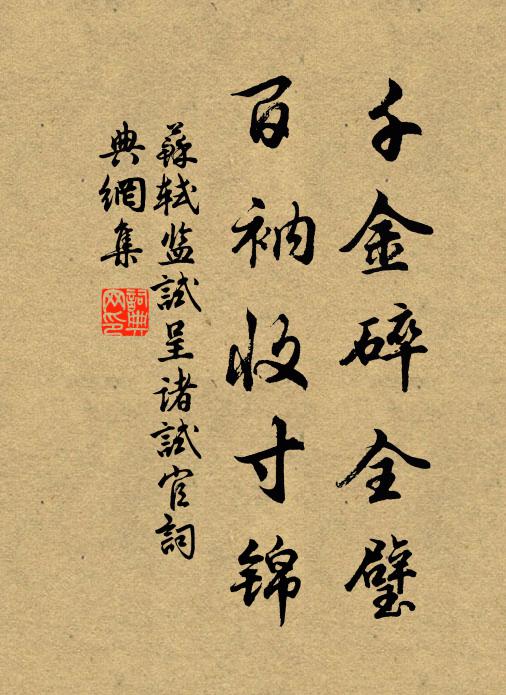 千金碎全璧
百衲收寸锦
蘇轼监試呈诸試官詞
典網集
詞典
网印